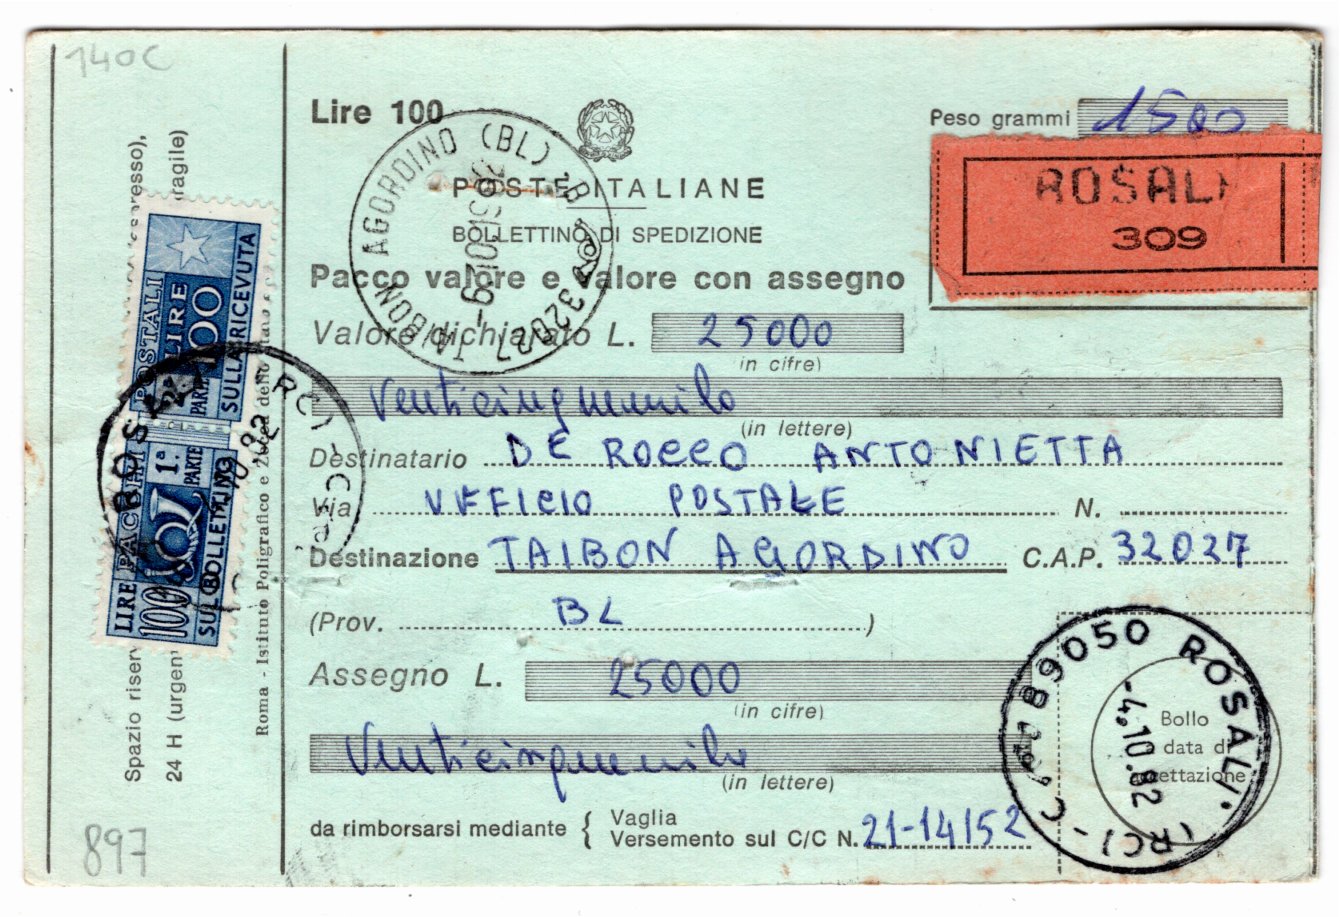 140C
Lire 100
Peso grammi 1500
ROSALI
309
POSTE ITALIANE
BOLLETTINO DI SPEDIZIONE
Pacco valore e valore con assegno
Valore dichiarato L. 25000
(in cifre)
Venticinquemila
(in lettere)
Destinatario DE ROCCO ANTONIETTA
Via UFFICIO POSTALE N.
Destinazione TAIBON AGORDINO C.A.P. 32027
(Prov. BL )
Assegno L. 25000
(in cifre)
Venticinquemila
(in lettere)
da rimborsarsi mediante { Vaglia
Versamento sul C/C N. 21-14152
Bollo
data di
accettazione
89050 ROSALI' (RC) - C
-4.10.82
32027 TAIBON AGORDINO (BL)
Spazio riserv
espresso),
24 H (urgen
ragile)
Roma - Istituto Poligrafico e Zecca dello Stato
POSTALI
LIRE 100
2ª PARTE
SULLA RICEVUTA
LIRE 100
PACCHI
1ª PARTE
SUL BOLLETTINO
ROSALI' (RC) - C
10.82
897